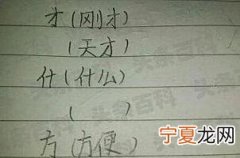 才(刚才)
(天才)
什(什么)
(    )
方(方便)
宁夏龙网